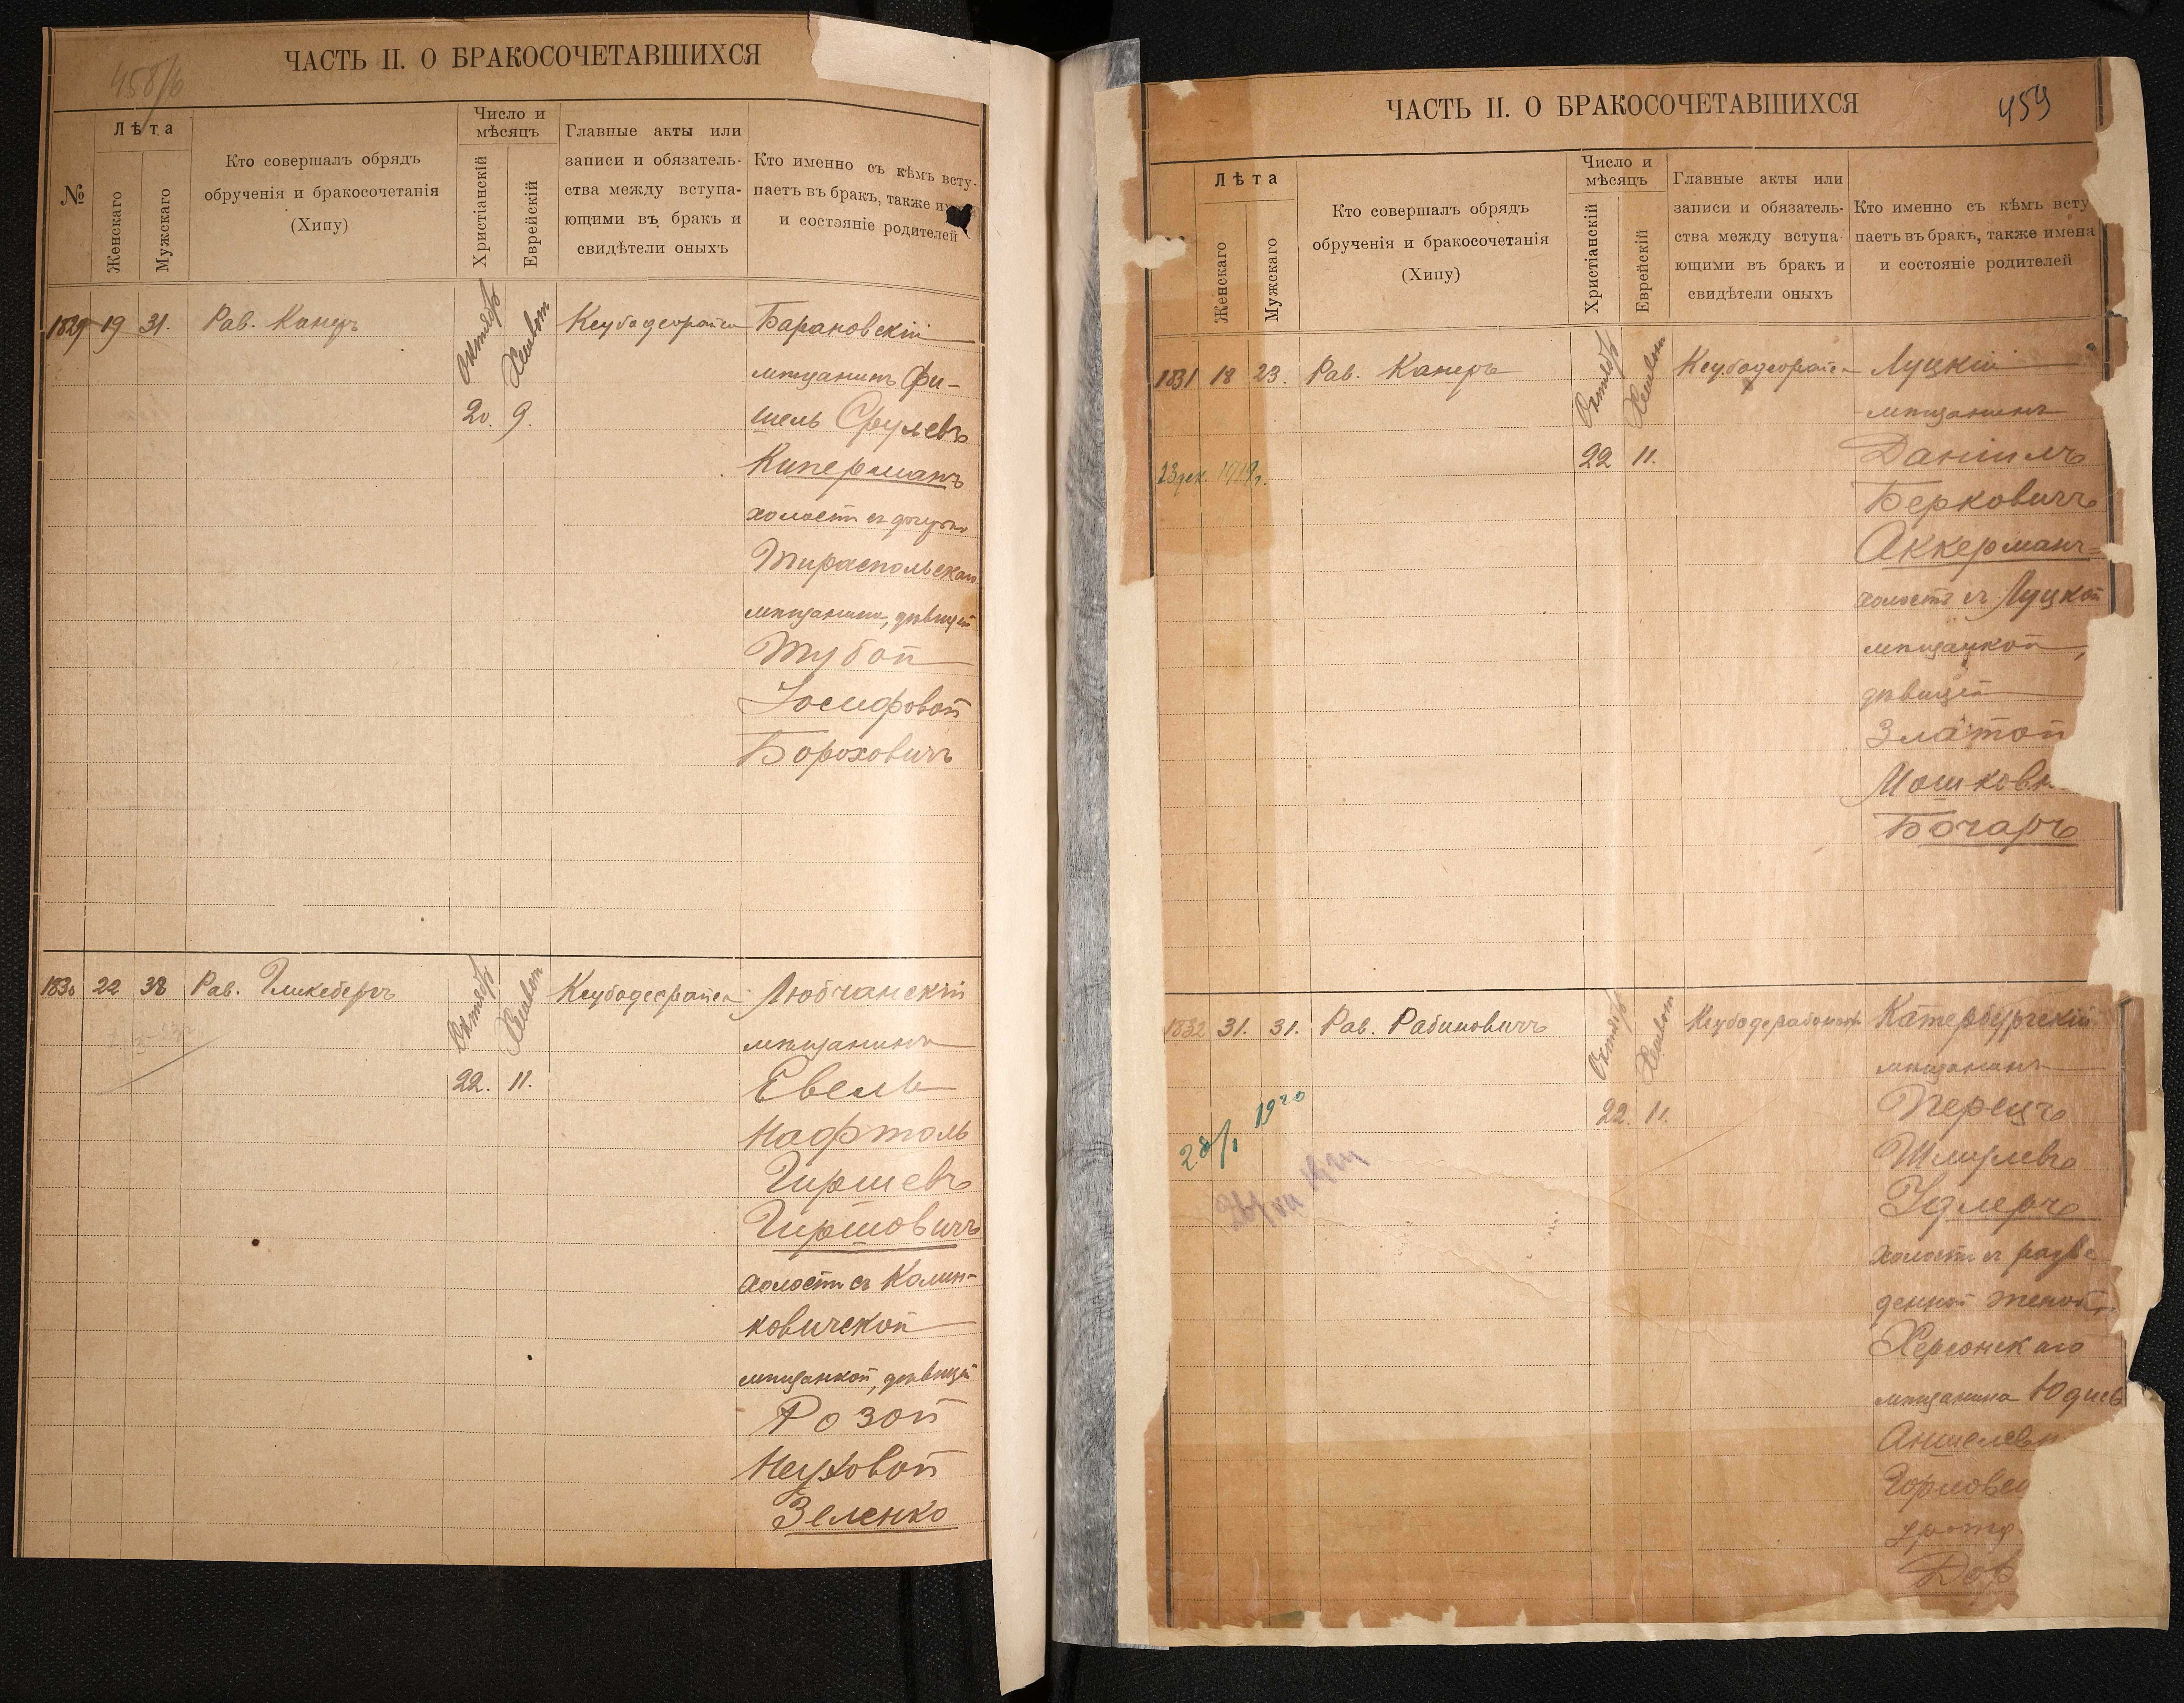 458/б
ЧАСТЬ II. О БРАКОСОЧЕТАВШИХСЯ
№
Лѣта
Женскаго
Мужскаго
Кто совершалъ обрядъ
обрученія и бракосочетанія
(Хипу)
Число и
мѣсяцъ
Христіанскій
Еврейскій
Главные акты или
записи и обязатель-
ства между вступа-
ющими въ бракъ и
свидѣтели оныхъ
Кто именно съ кѣмъ всту-
паетъ въ бракъ, также
и состояніе родителей
1829 19 31. Рав. Канеръ
Октябрь Хешвон
20. 9.
Кеубодеорайса
Барановскій
мѣщанинъ Фи-
шель Срулевъ
Киперманъ
холост съ дочерью
Тираспольскаго
мѣщанина, дѣвицей
Тубой
Іосифовой
Бороховичъ
1830 22 38 Рав. Гликбергъ
Октябрь Хешвон
22. 11.
Кеубодеорайса
Любчанскій
мѣщанинъ
Евель
Нафтоль
Гиршевъ
Гиршовичъ
холост съ Калин-
ковичской
мѣщанкой, дѣвицей
Розой
Неуховой
Зеленко
ЧАСТЬ II. О БРАКОСОЧЕТАВШИХСЯ
459
Лѣта
Женскаго
Мужскаго
Кто совершалъ обрядъ
обрученія и бракосочетанія
(Хипу)
Число и
мѣсяцъ
Христіанскій
Еврейскій
Главные акты или
записи и обязатель-
ства между вступа-
ющими въ бракъ и
свидѣтели оныхъ
Кто именно съ кѣмъ всту
паетъ въ бракъ, также имена
и состояніе родителей
1831 18 23. Рав. Канеръ
Октябрь Хешвон
22 11.
23 дек. 1919г.
Кеубодеорайса
Луцкій
мѣщанинъ
Даніилъ
Берковичъ
Аккерманъ
холостъ съ Луцкой
мѣщанкой,
дѣвицей
Златой
Мошковн
Бочаръ
1832 31. 31. Рав. Рабиновичъ
Октябрь Хешвон
22. 11.
28/I 1920
Катербургскій
мѣщанинъ
Перецъ
Шмулевъ
Ідлеръ
холостъ съ разве-
денной женой
Херсонскаго
мѣщанина Юдисъ
Аншелевн
Горловск
урожд.
Дор